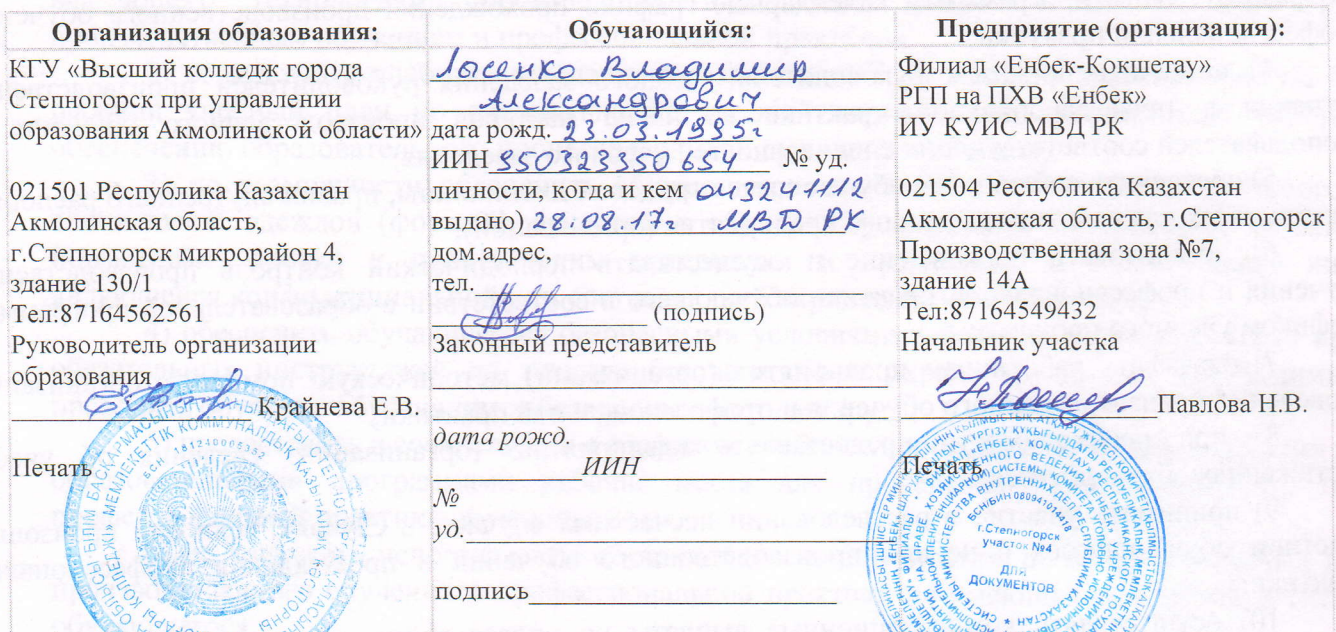 Организация образования:
КГУ «Высший колледж города
Степногорск при управлении
образования Акмолинской области»
021501 Республика Казахстан
Акмолинская область,
г.Степногорск микрорайон 4,
здание 130/1
Тел:87164562561
Руководитель организации
образования
Крайнева Е.В.
Печать
Обучающийся:
Лысенко Владимир
Александрович
дата рожд. 23.03.1995г
ИИН 950323350254 № уд.
личности, когда и кем 043241112
выдано) 28.08.17г МВД РК
дом.адрес,
тел.
(подпись)
Законный представитель
дата рожд.
ИИН
№
уд.
подпись
Предприятие (организация):
Филиал «Енбек-Кокшетау»
РГП на ПХВ «Енбек»
ИУ КУИС МВД РК
021504 Республика Казахстан
Акмолинская область, г.Степногорск
Производственная зона №7,
здание 14А
Тел:87164549432
Начальник участка
Павлова Н.В.
Печать
г.Степногорск
участок №4
ДЛЯ
ДОКУМЕНТОВ